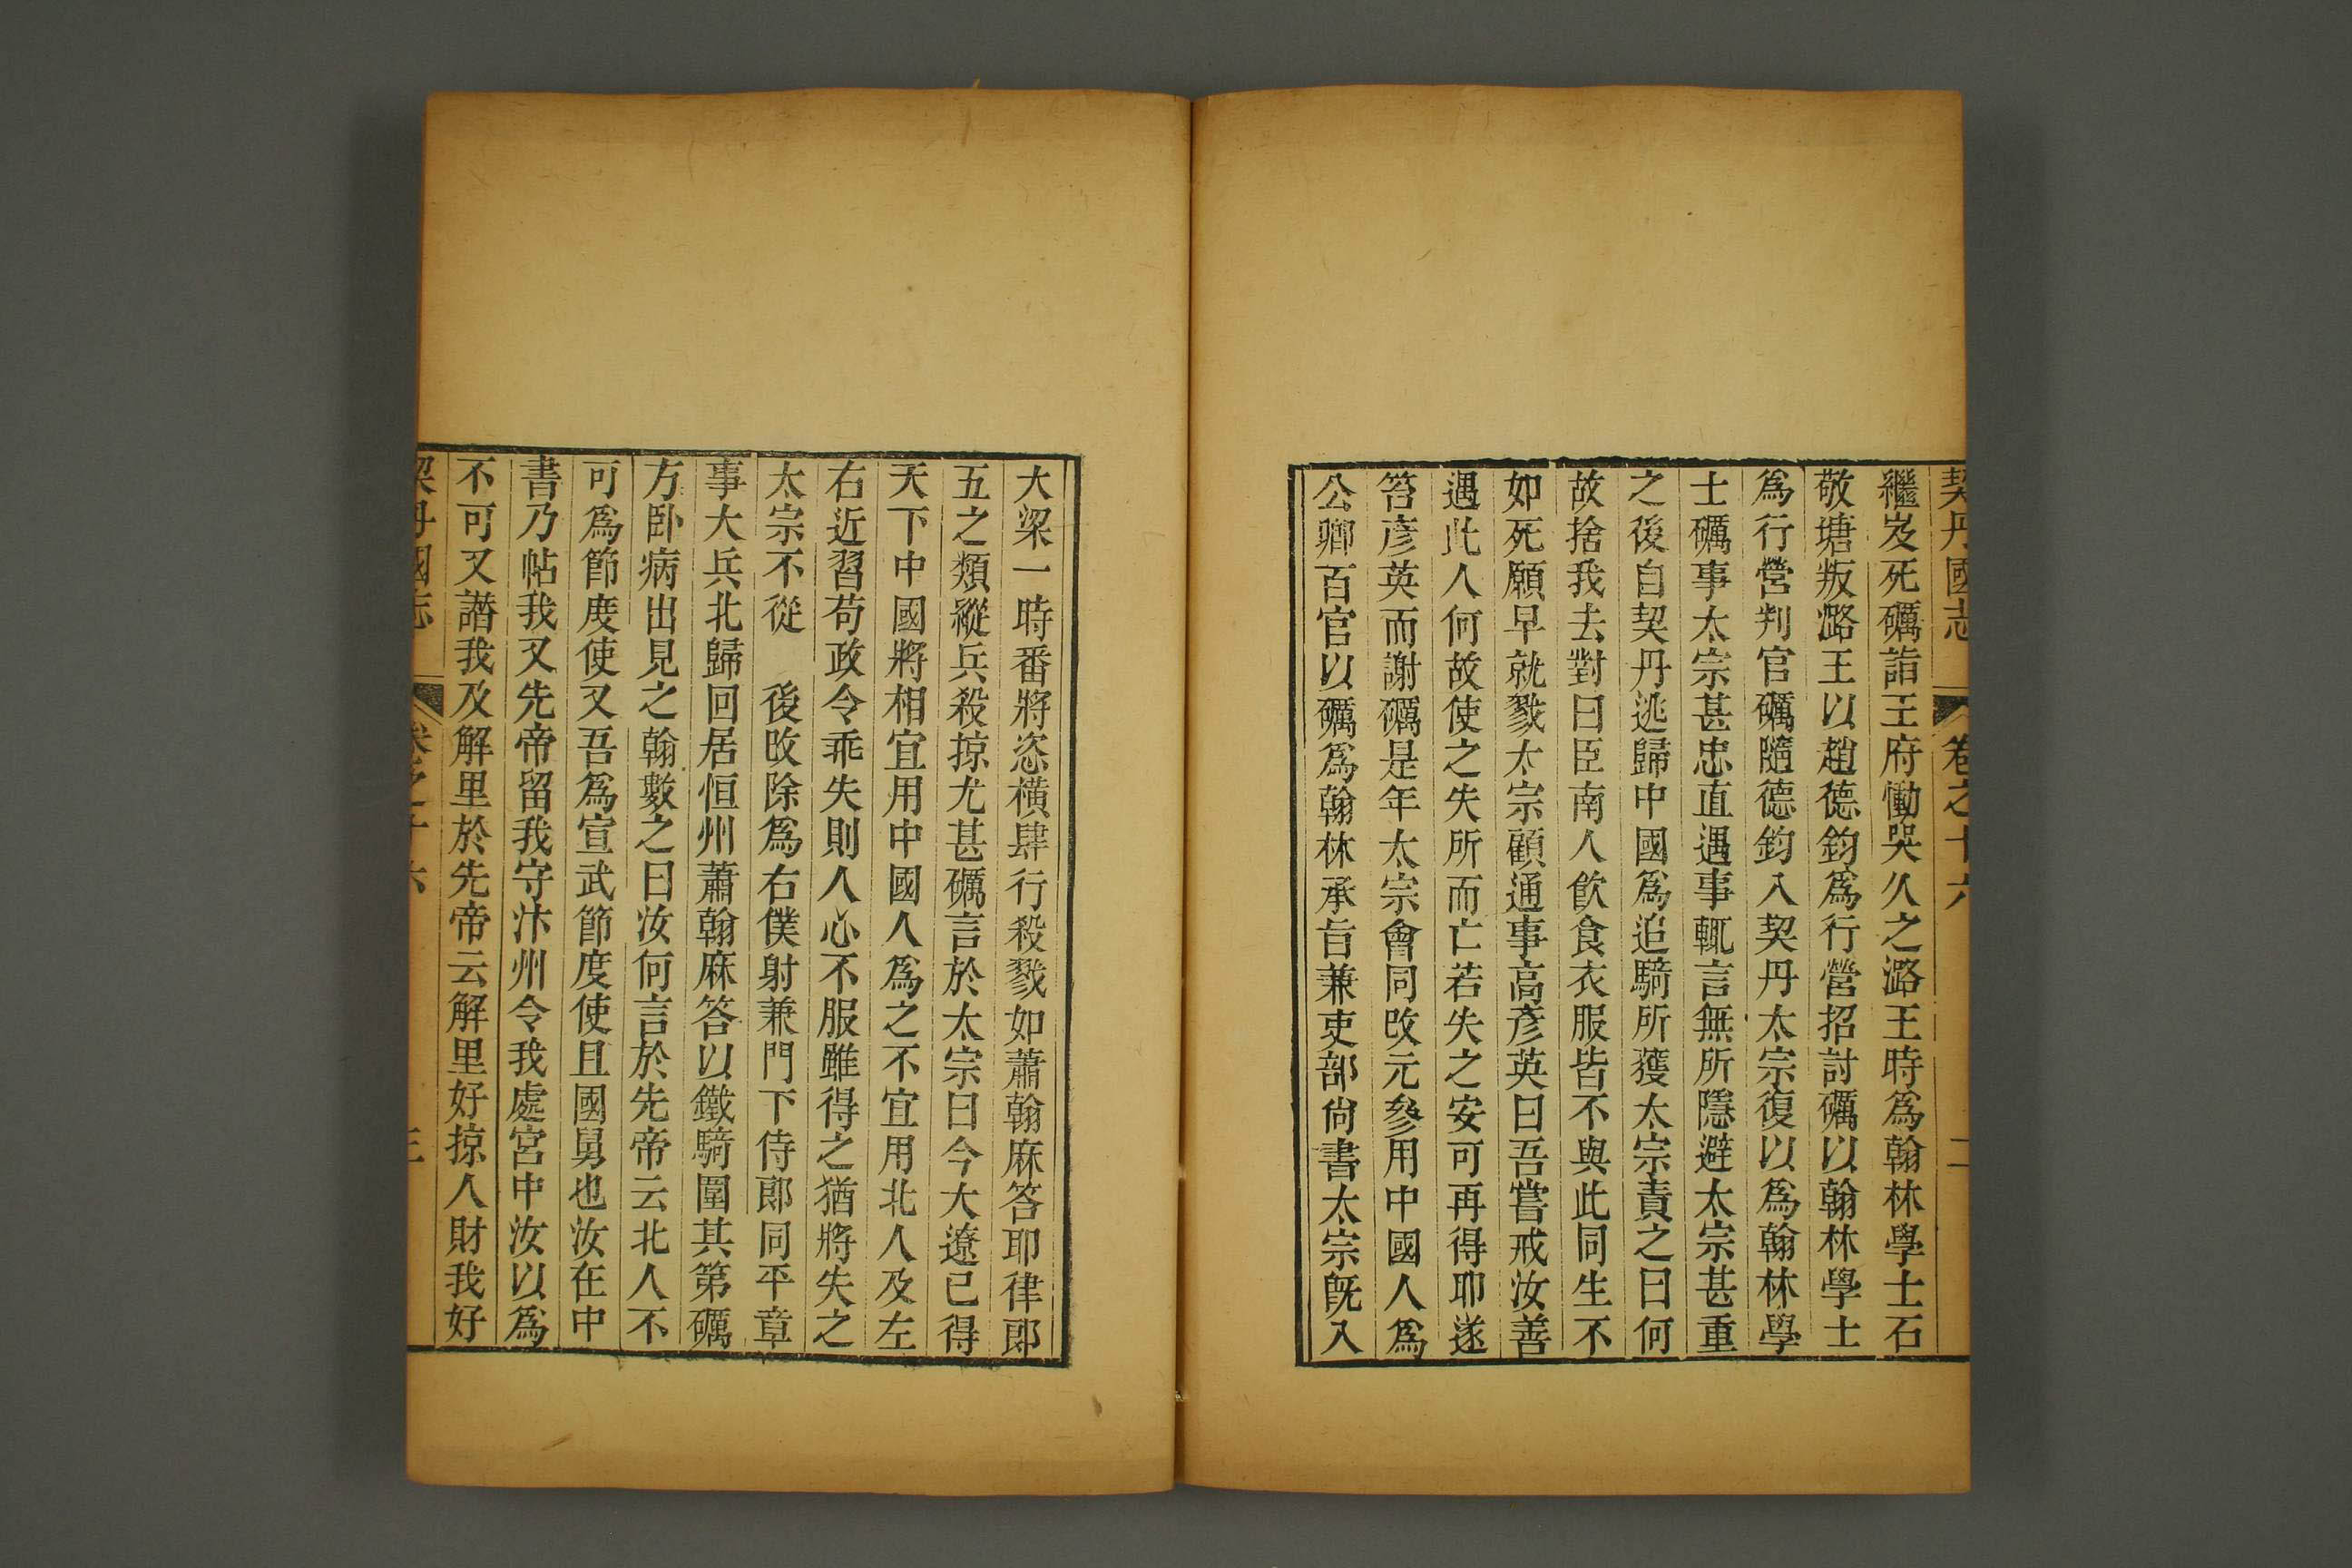 契丹國志 卷之十六 二
繼岌死礪詣王府慟哭久之潞王時爲翰林學士石
敬塘叛潞王以趙德鈞爲行營招討礪以翰林學士
爲行營判官礪隨德鈞入契丹太宗復以爲翰林學
士礪事太宗甚忠直遇事輒言無所隱避太宗甚重
之後自契丹逃歸中國爲追騎所獲太宗責之曰何
故捨我去對曰臣南人飲食衣服皆不與此同生不
如死願早就戮太宗顧通事高彥英曰吾嘗戒汝善
遇此人何故使之失所而亡若失之安可再得耶遂
笞彥英而謝礪是年太宗會同改元參用中國人爲
公卿百官以礪爲翰林承旨兼吏部尙書太宗旣入
大梁一時番將恣橫肆行殺戮如蕭翰麻答耶律郎
五之類縱兵殺掠尤甚礪言於太宗曰今大遼已得
天下中國將相宜用中國人爲之不宜用北人及左
右近習苟政令乖失則人心不服雖得之猶將失之
太宗不從　後改除爲右僕射兼門下侍郎同平章
事大兵北歸回居恒州蕭翰麻答以鐵騎圍其第礪
方卧病出見之翰數之曰汝何言於先帝云北人不
可爲節度使又吾爲宣武節度使且國舅也汝在中
書乃帖我又先帝留我守汴州令我處宮中汝以爲
不可又譖我及解里於先帝云解里好掠人財我好
契丹國志 卷之十六 三